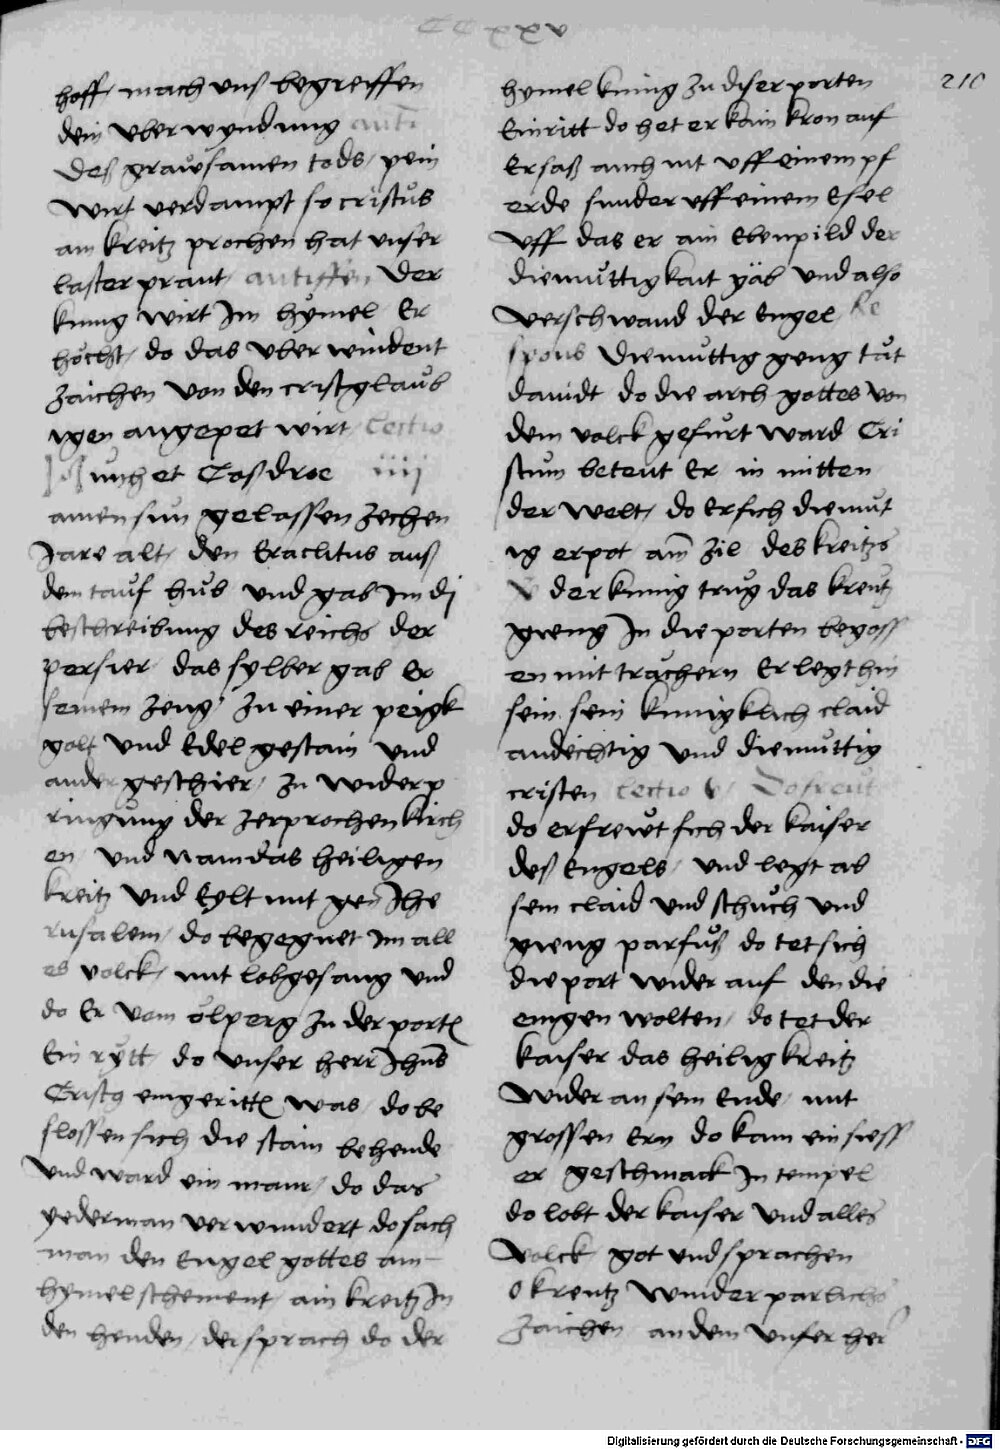 CCxxv
210
hoff / mach uns begreiffen
dein uberwyndung anti
deß grawsamen tods / pein
wirt verdampt so cristus
am kreitz prochen hat unser
laster prant / antiffen Der
kunig wirt Im hymel Er
höchst / do das uberwindent
zaichen von den cristglaub
igen angepet wirt / Lectio
Nun het Casdroe iiij
amen sun gelassen zechen
Jare alt / den Eraclitus auß
dem tauf hub und gab Im di
beschreibung des reichs der
persier / das sylber gab Er
seinem zeug / zu einer peigk
golt und Edel gestain und
ander geschier / zu widerp
ringung der zerprochen kirch
en und nam das heiligen
kreitz und Eylt mit gen Jhe
rusalem / do begegnet Im all
es volck / mit lobgesang und
do Er vom ölperg zu der port
Ein rytt / do unser herr Jhus
Cristus eingeritt was / do be
slossen sich die stain behende
und ward ein maur / do das
yederman verwundert do sach
man den Engel gottes am
hymel schement / ain kreitz In
den henden / der sprach do der
hymel kunig zu diser porten
Einritt do het er kain kron auf
Er saß auch nit uff einem pf
erde sunder uff einem Esel
uff das er ain Ebenpild der
diemuttigkait gäb und also
verschwand der Engel Re
spons Diemuttig geng tut
dauidt do die arch gottes von
dem volck gefurt ward Cri
stum beteut Er in mitten
der welt / do er sich diemut
ig erpot am zil des kreitzs
V der kunig trug das kreutz
gieng In die porten begoss
en mit trachern Er legt hin
sein sein kunigklich claid
andechtig und diemuttig
cristen lectio v / Do freut
do erfrewt sich der kaiser
deß Engels / und legt ab
sein claid und schuch und
gieng parfuß do tet sich
die port wider auf den die
eingen wolten / do tet der
kaiser das heilig kreitz
wider an sein Ende / mit
grossen Ern do kam ein siess
er geschmack In tempel
do lobt der kaiser und alles
volck got und sprachen
O kreutz wunderparlichs
zaichen an dem unser her
Digitalisierung gefördert durch die Deutsche Forschungsgemeinschaft - DFG